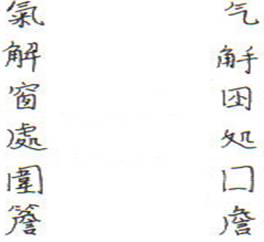 氣 气
解
窗
處 処
圍 囗
簷 詹